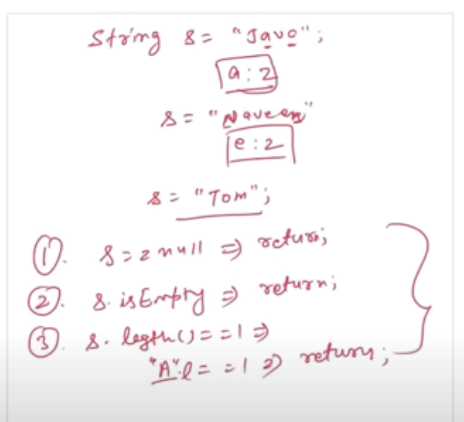 String s = "Java";
a : 2
s = "Naveen"
e : 2
s = "Tom";
1. s == null => return;
2. s. isEmpty => return;
3. s. legth() = = 1 =>
"A".l = = 1 => return;